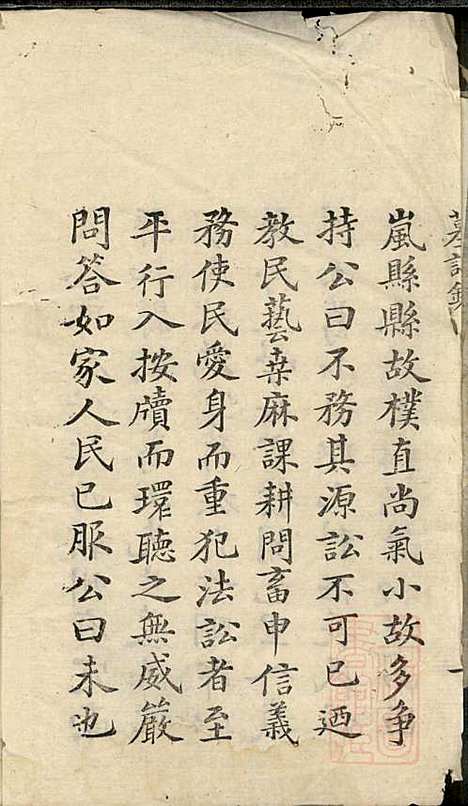 嵐縣縣故樸直尚氣小故多争
持公曰不務其源訟不可已迺
教民藝桒麻課耕問畜申信義
務使民愛身而重犯法訟者至
平行入按牘而環聽之無威嚴
問答如家人民已服公曰未也